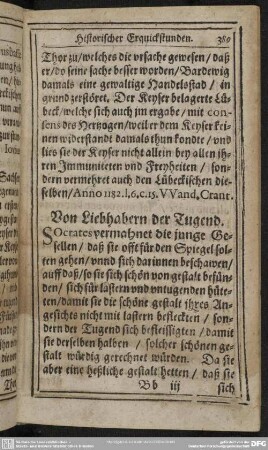 Historischer Erquickstunden. 389
Thor zu/welches die ursache gewesen/daß
er/do seine sache besser worden/Bardewig
damals eine gewaltige Handelsstad/in
grund zerstöret. Der Keyser belagerte Lü-
beck/welche sich auch jm ergabe/mit con-
sens des Hertzogen/weil er dem Keyser kei-
nen widerstandt damals thun kondte/und
lies sie der Keyser nicht allein bey allen jh-
ren Immuniteten und Freyheiten/son-
dern vermehret auch den Lübeckischen die-
selben/Anno 1182. l. 6. c. 15. V Vand, Crant.
Von Liebhabern der Tugend.
SOcrates vermahnet die junge Ge-
sellen/daß sie offt für den Spiegel sol-
ten gehen/vnnd sich darinnen beschawen/
auff daß/so sie sich schön von gestalt befün-
den/sich für lastern und untugenden hüte-
ten/damit sie die schöne gestalt jhres An-
gesichts nicht mit lastern befleckten/son-
dern der Tugend sich befleissigten/damit
sie derselben halben/solcher schönen ge-
stalt würdig gerechnet würden. Da sie
aber eine heßliche gestalt hetten/daß sie
Bb iij sich
DFG